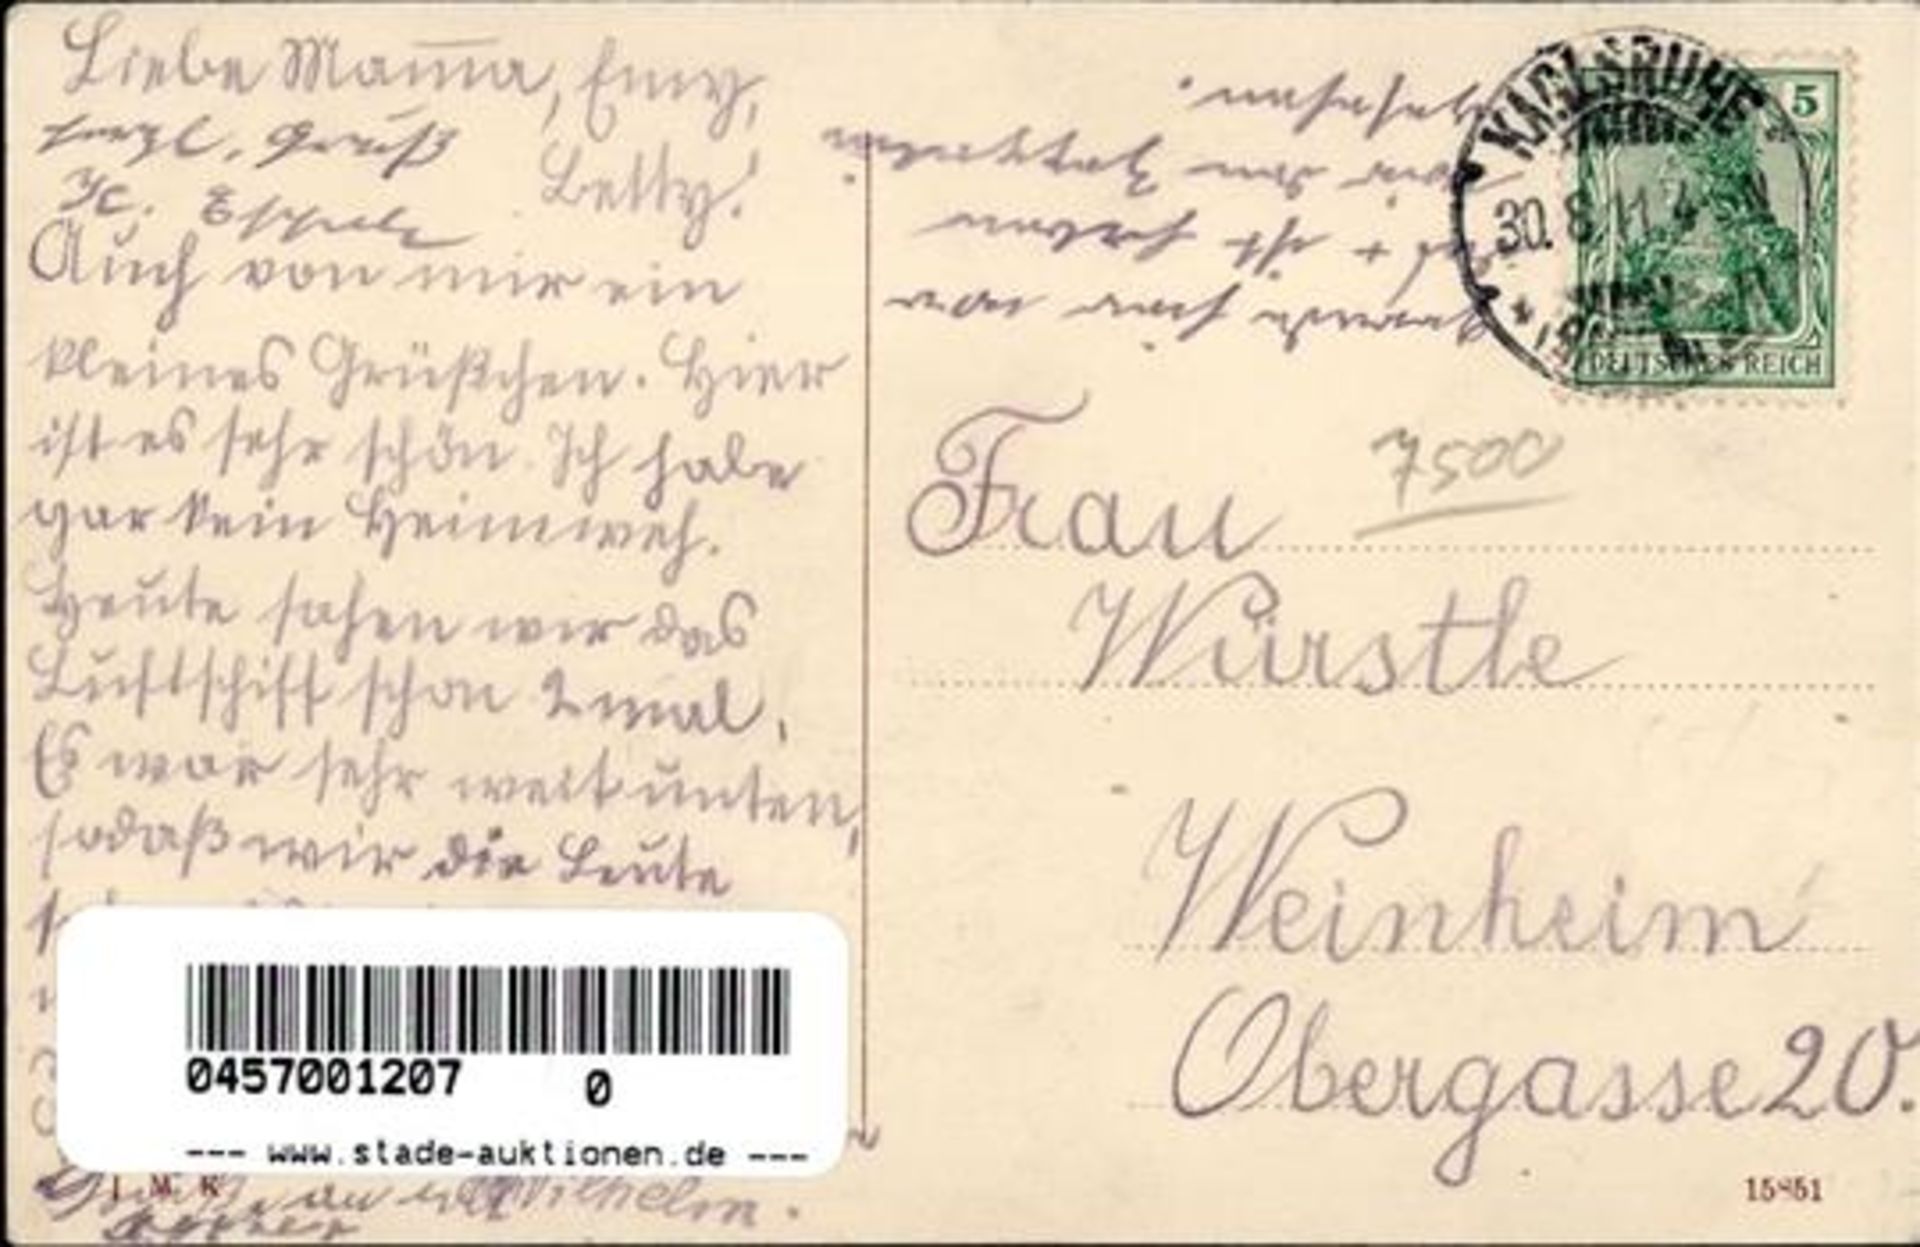 Liebe Mama, Emy,
Betty!
herzl. Gruß
Auch von mir ein
kleines Grüßchen. Hier
ist es sehr schön. Ich habe
gar kein Heimweh.
Heute sahen wir das
Luftschiff schon 2 mal,
Es war sehr weit unten,
sodaß wir die Leute
Wilhelm.
gesehen.
wir den Zeppelin
ist haben
hier war
KARLSRUHE
30. 8. 11. 4
5
DEUTSCHES REICH
7500
Frau
Würstle
Weinheim
Obergasse 20.
0457001207 0
--- www.stade-auktionen.de ---
15851